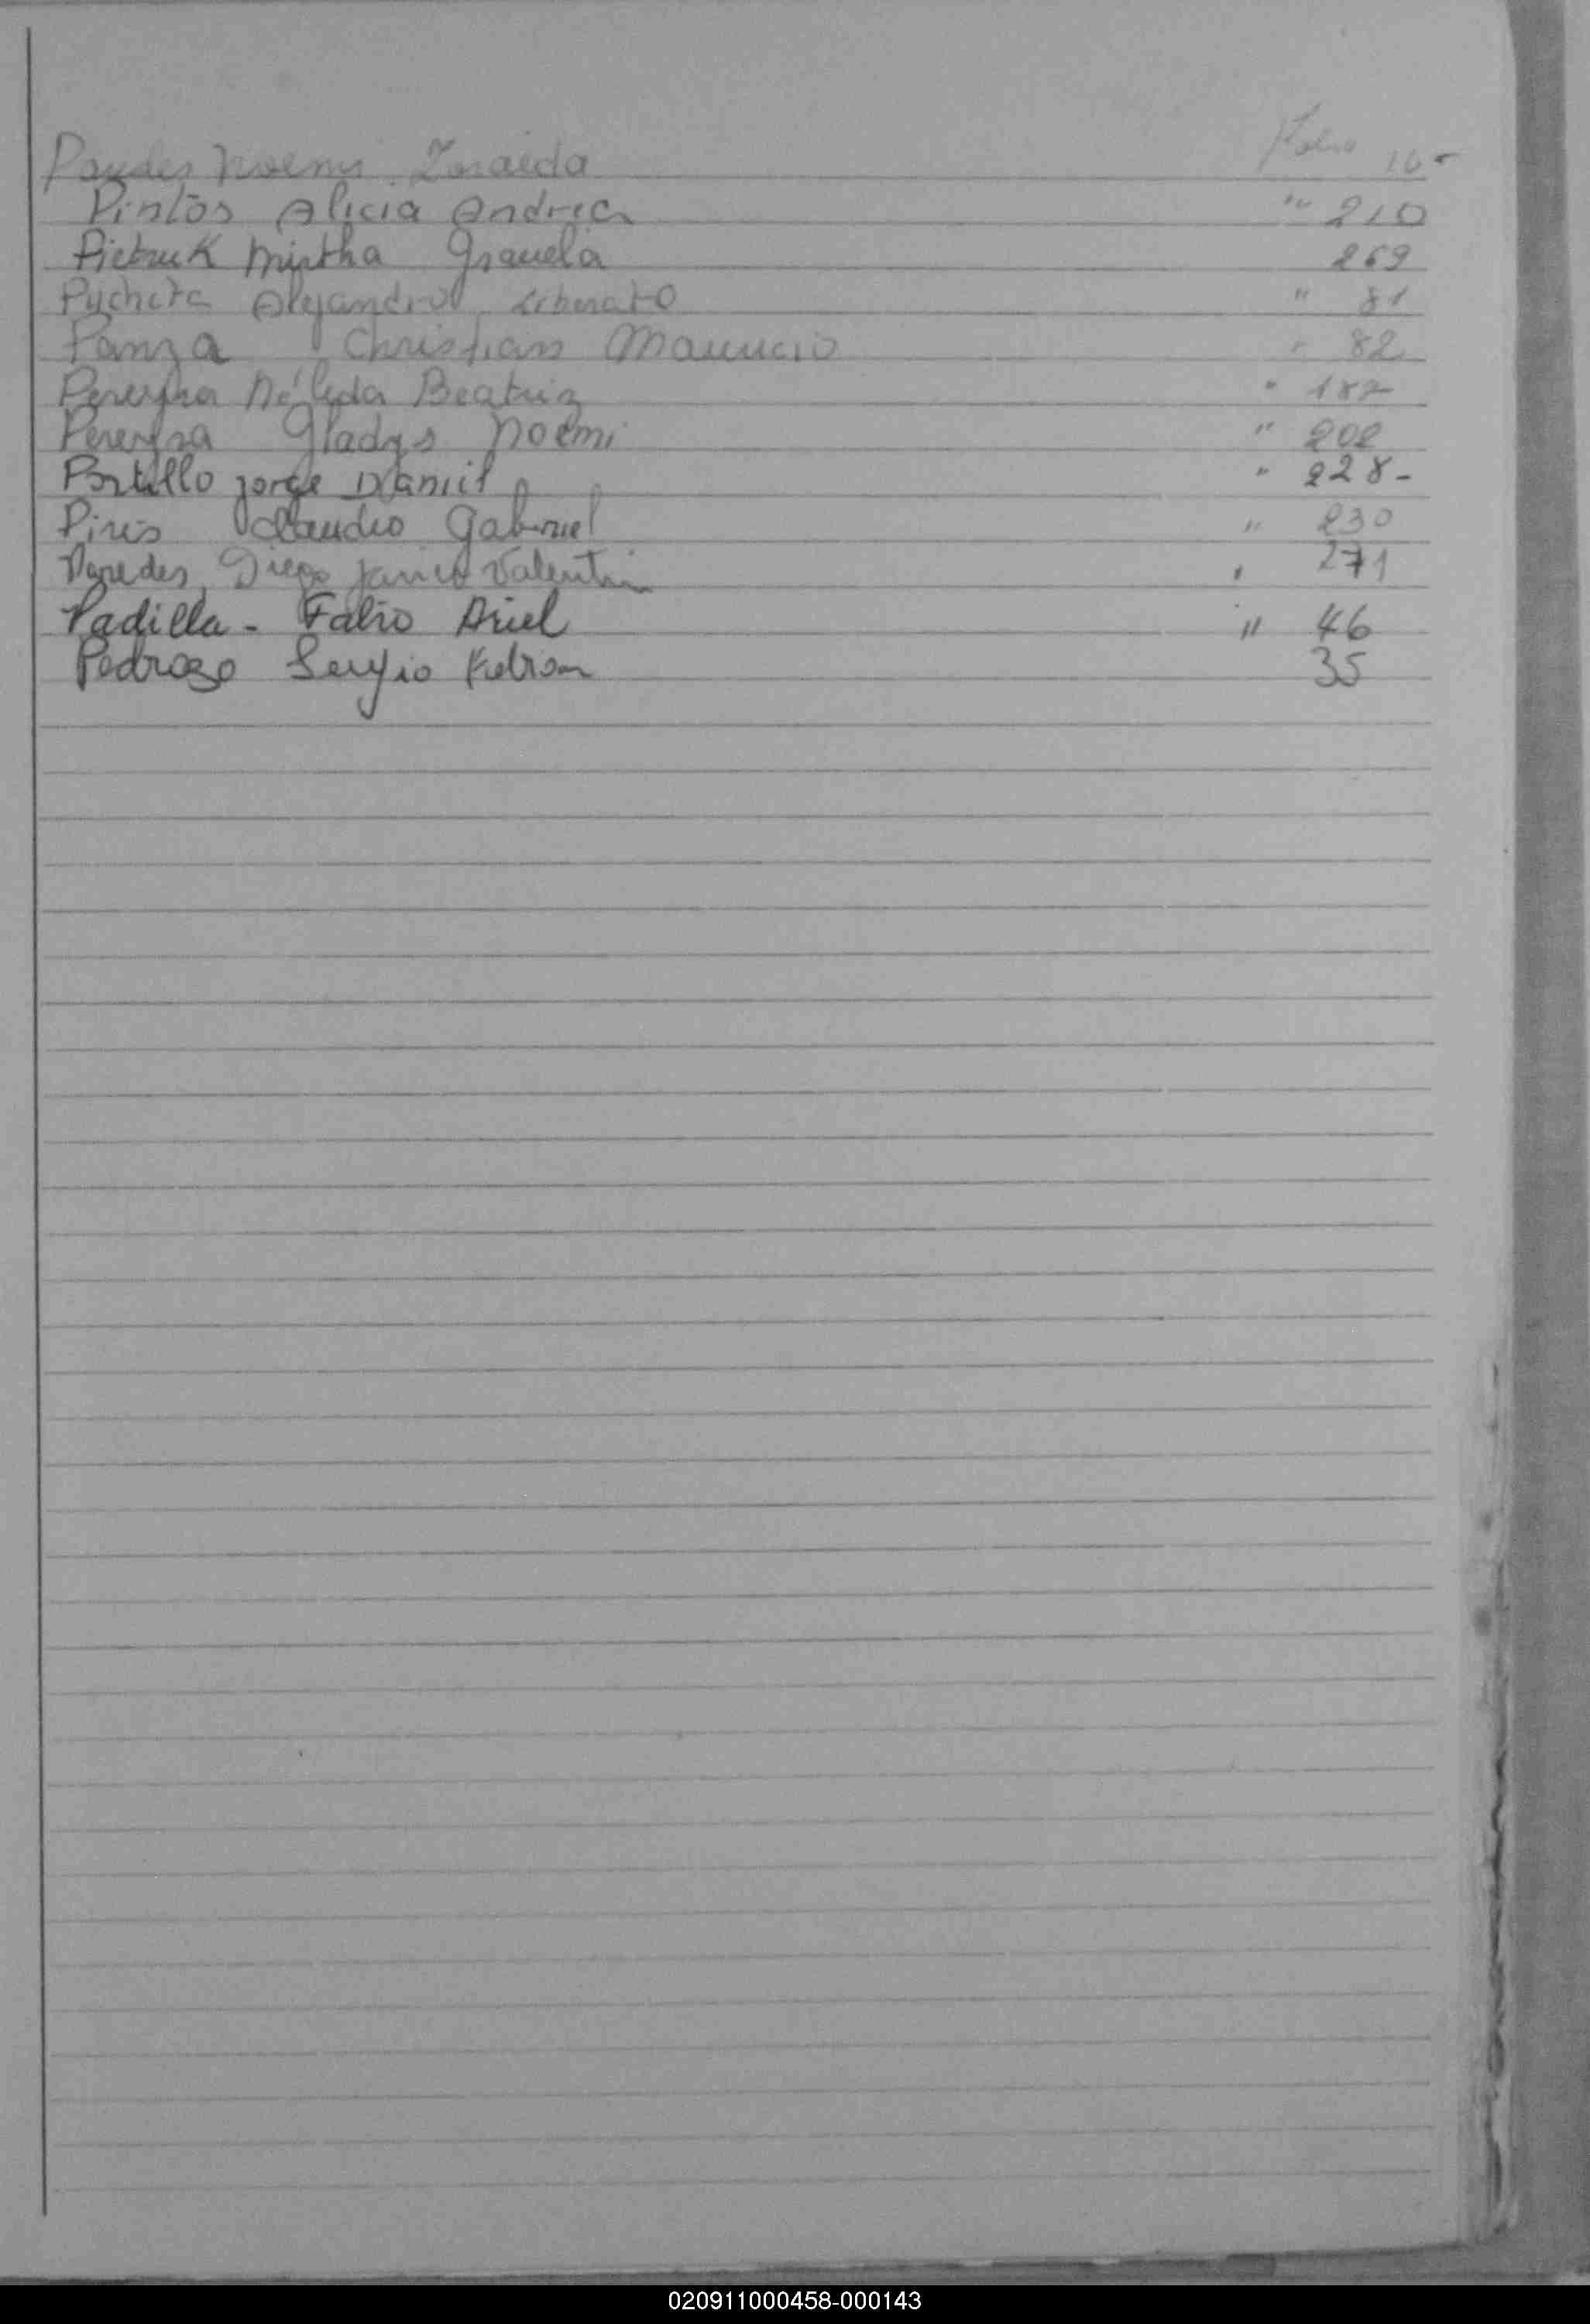 Noemi Zoraida Folio
Pintos Alicia Andrea " 210
Pietruk Mirtha Graciela 269
Alejandro Liberato " 81
Panza Christian Mauricio " 82
Pereyra Nélida Beatriz " 187
Pereyra Gladys Noemi " 202
Portillo Jorge Daniel " 228-
Piris Claudio Gabriel " 230
Paredes, Diego Valentin " 271
Padilla - Fabio Ariel " 46
Pedrozo Sergio Fabian 35
020911000458-000143